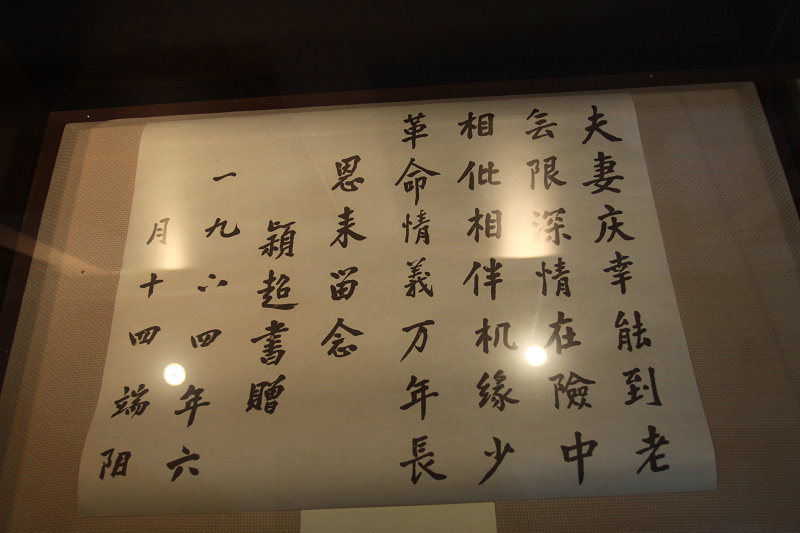 夫妻庆幸能到老
无限深情在險中
相伙相伴机缘少
革命情義万年長
恩来留念
颖超書贈
一九六四年六
月十四端阳